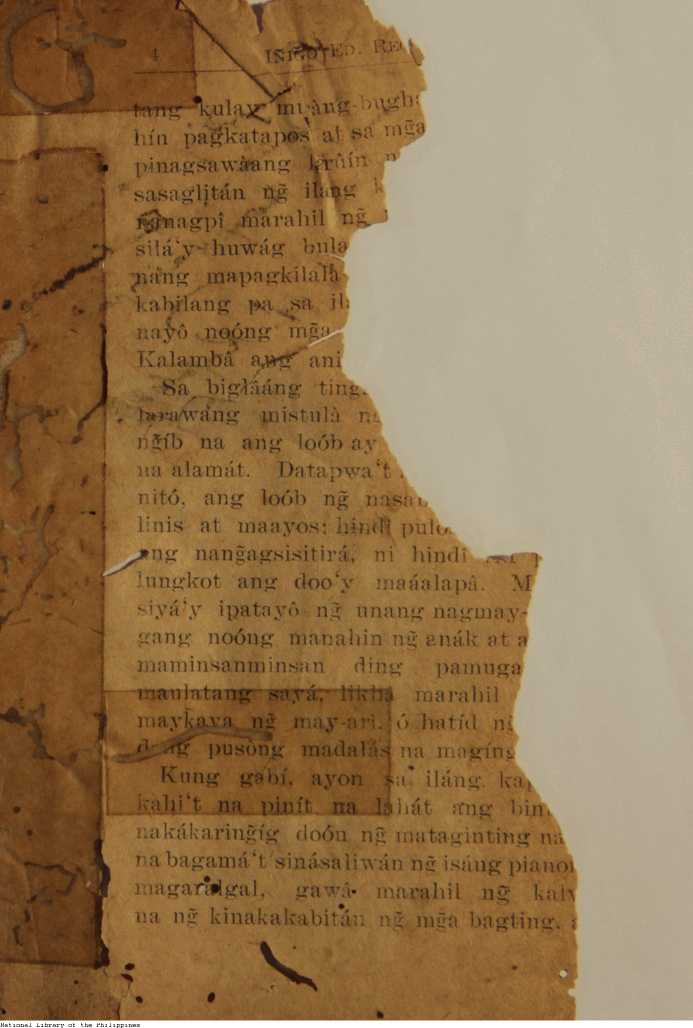 4 IÑIGO ED. RE
tang kulay muàng-bugha
hín pagkatapos at sa mg̃a
pinagsawàang
sasaglitán ng̃ ilang k
marahil ng̃
silá‘y huwág bula
nang mapagkilalà
kabilang pa sa il
nayô noóng mg̃a
Kalambâ ang ani
Sa bigláang ting
larawang mistulà n
ng̃íb na ang loób ay
na alamát. Datapwa‘t
nitó, ang loób ng̃ nasab
linis at maayos; hindî pulo
ang nang̃agsisitirá, ni hindî
lungkot ang doo‘y maáalapâ. M
siyá‘y ipatayô ng̃ unang nagmay-
gang noóng manahin ng̃ anák at a
maminsanminsan ding pamuga
maulatang sayá, likhâ marahil
maykaya ng̃ may-ari, ó hatíd ni
pusòng madalás na magíng
Kung gabí, ayon sa iláng kap
kahi‘t na pinít na lahát ang bin
nakákaring̃íg doón ng̃ mataginting na
na bagamá‘t sinásaliwán ng̃ isáng piano
magaralgal, gawâ marahil ng̃ kalw
na ng̃ kinakakabitán ng̃ mg̃a bagting, a
National Library of the Philippines